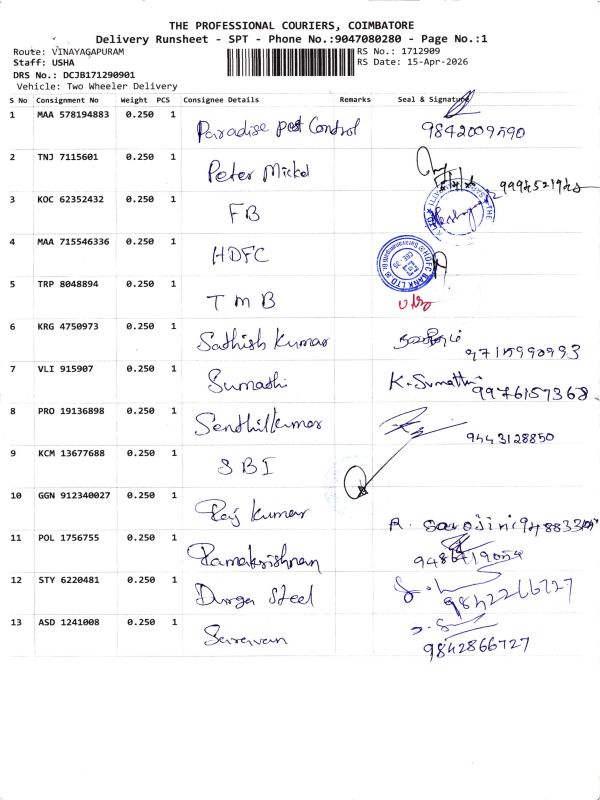 THE PROFESSIONAL COURIERS, COIMBATORE
Delivery Runsheet - SPT - Phone No.:9047080280 - Page No.:1
Route: VINAYAGAPURAM RS No.: 1712909
Staff: USHA RS Date: 15-Apr-2026
DRS No.: DCJB171290901
Vehicle: Two Wheeler Delivery
S No Consignment No Weight PCS Consignee Details Remarks Seal & Signature
1 MAA 578194883 0.250 1 Paradise pest Control 9842009590
2 TNJ 7115601 0.250 1 Peter Mickel
3 KOC 62352432 0.250 1 FB
4 MAA 715546336 0.250 1 HDFC HDFC BANK LTD
5 TRP 8048894 0.250 1 TMB
6 KRG 4750973 0.250 1 Sathish Kumar 9715990993
7 VLI 915907 0.250 1 Sumathi K. Sumathi 9976157368
8 PRO 19136898 0.250 1 Senthilkumar 9443128850
9 KCM 13677688 0.250 1 SBI
10 GGN 912340027 0.250 1 Raj Kumar R. Sarojini
11 POL 1756755 0.250 1 Ramakrishnan
12 STY 6220481 0.250 1 Durga Steel 9842266727
13 ASD 1241008 0.250 1 Saravan 9842866727